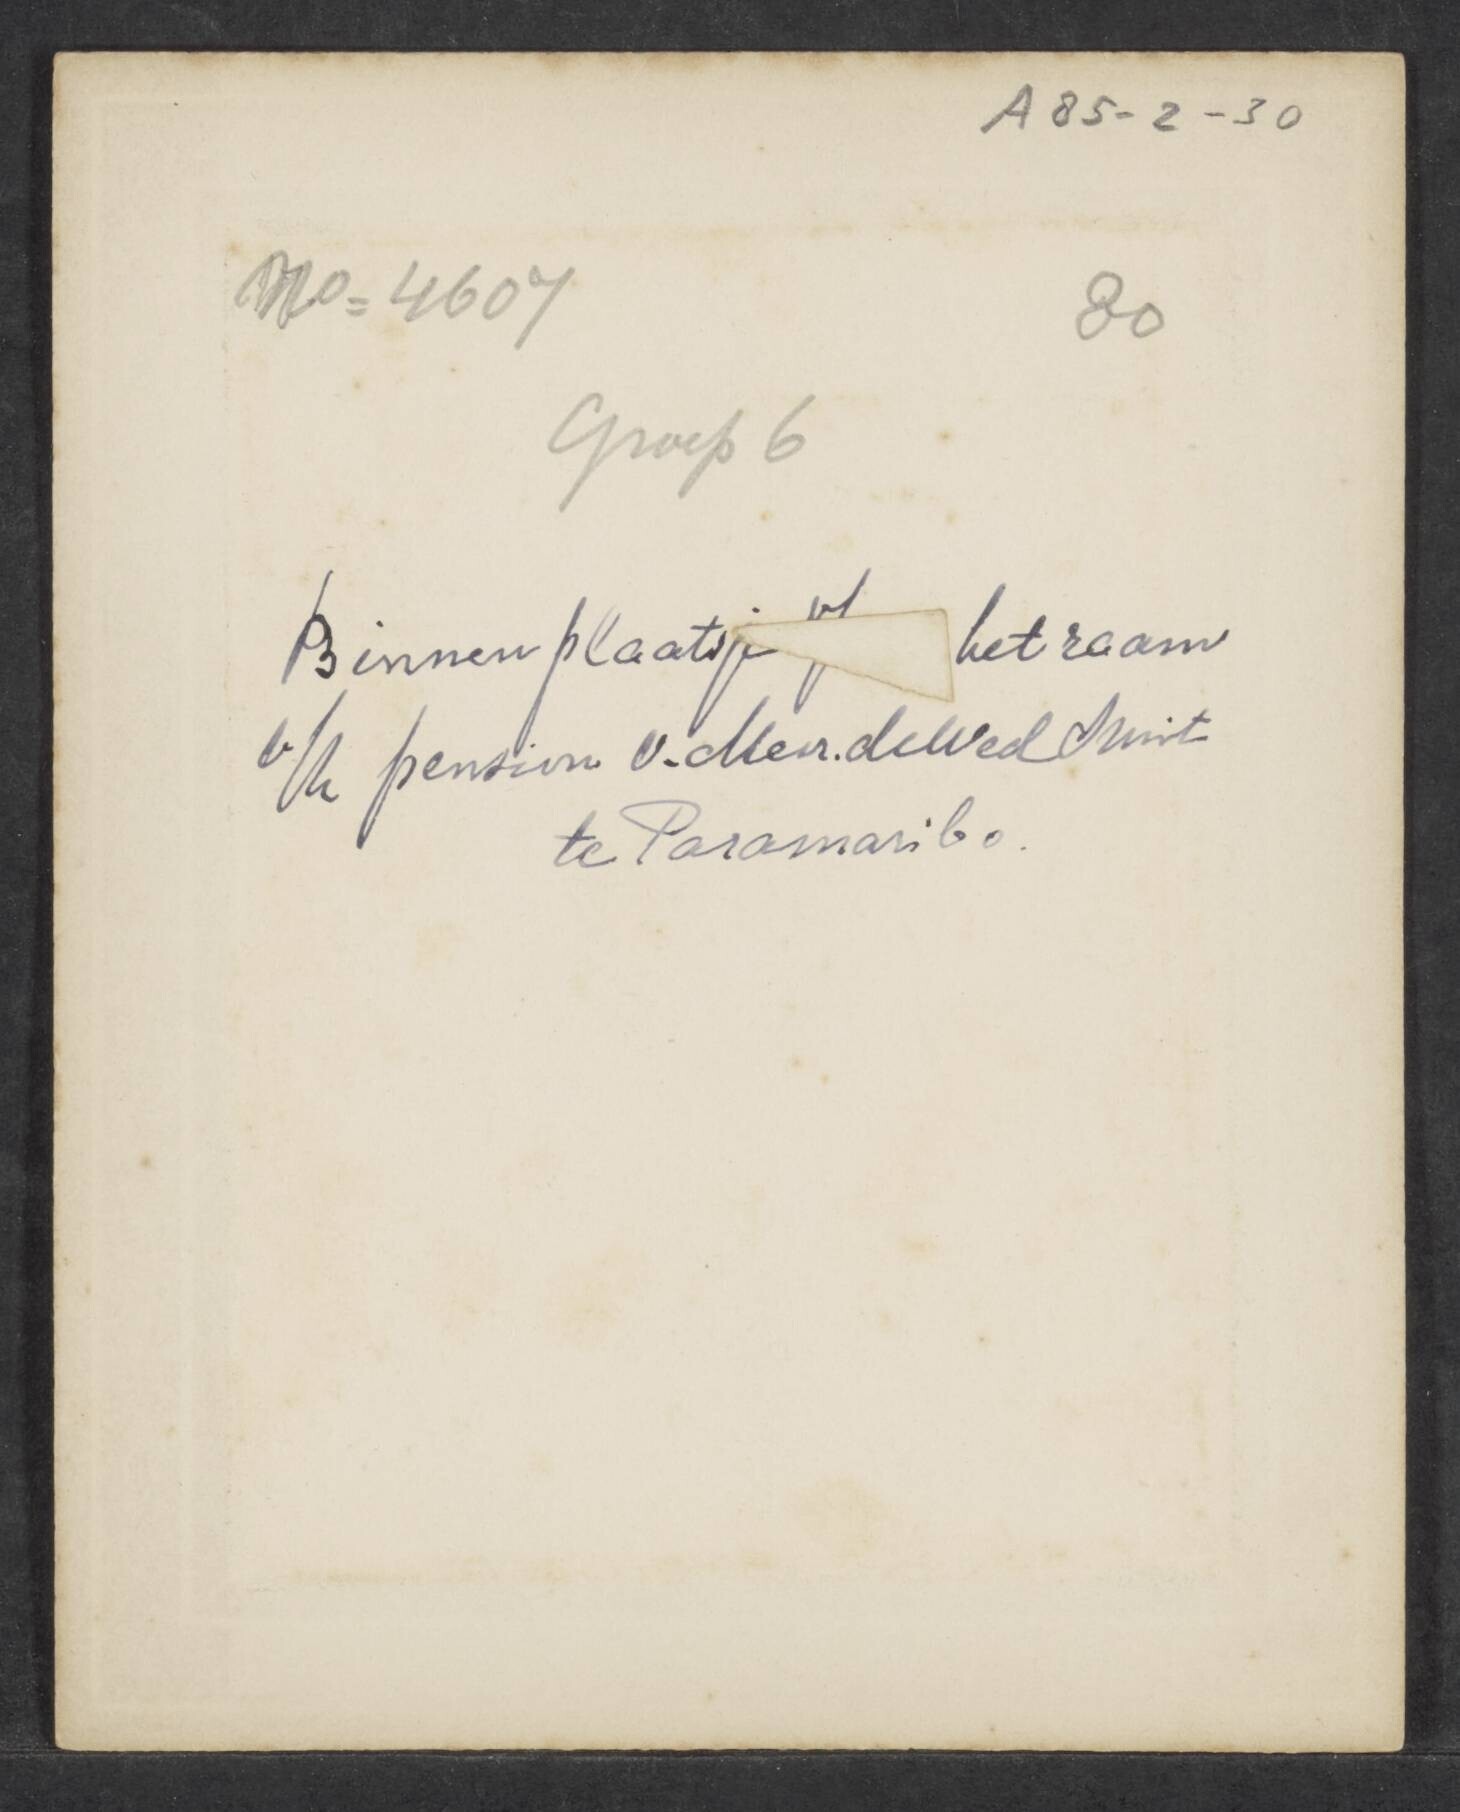 A 85-2-30
No= 4607
80
Groep 6
Binnenplaatsje het raam
v/h pension v. Mevr. de Wed
te Paramaribo.